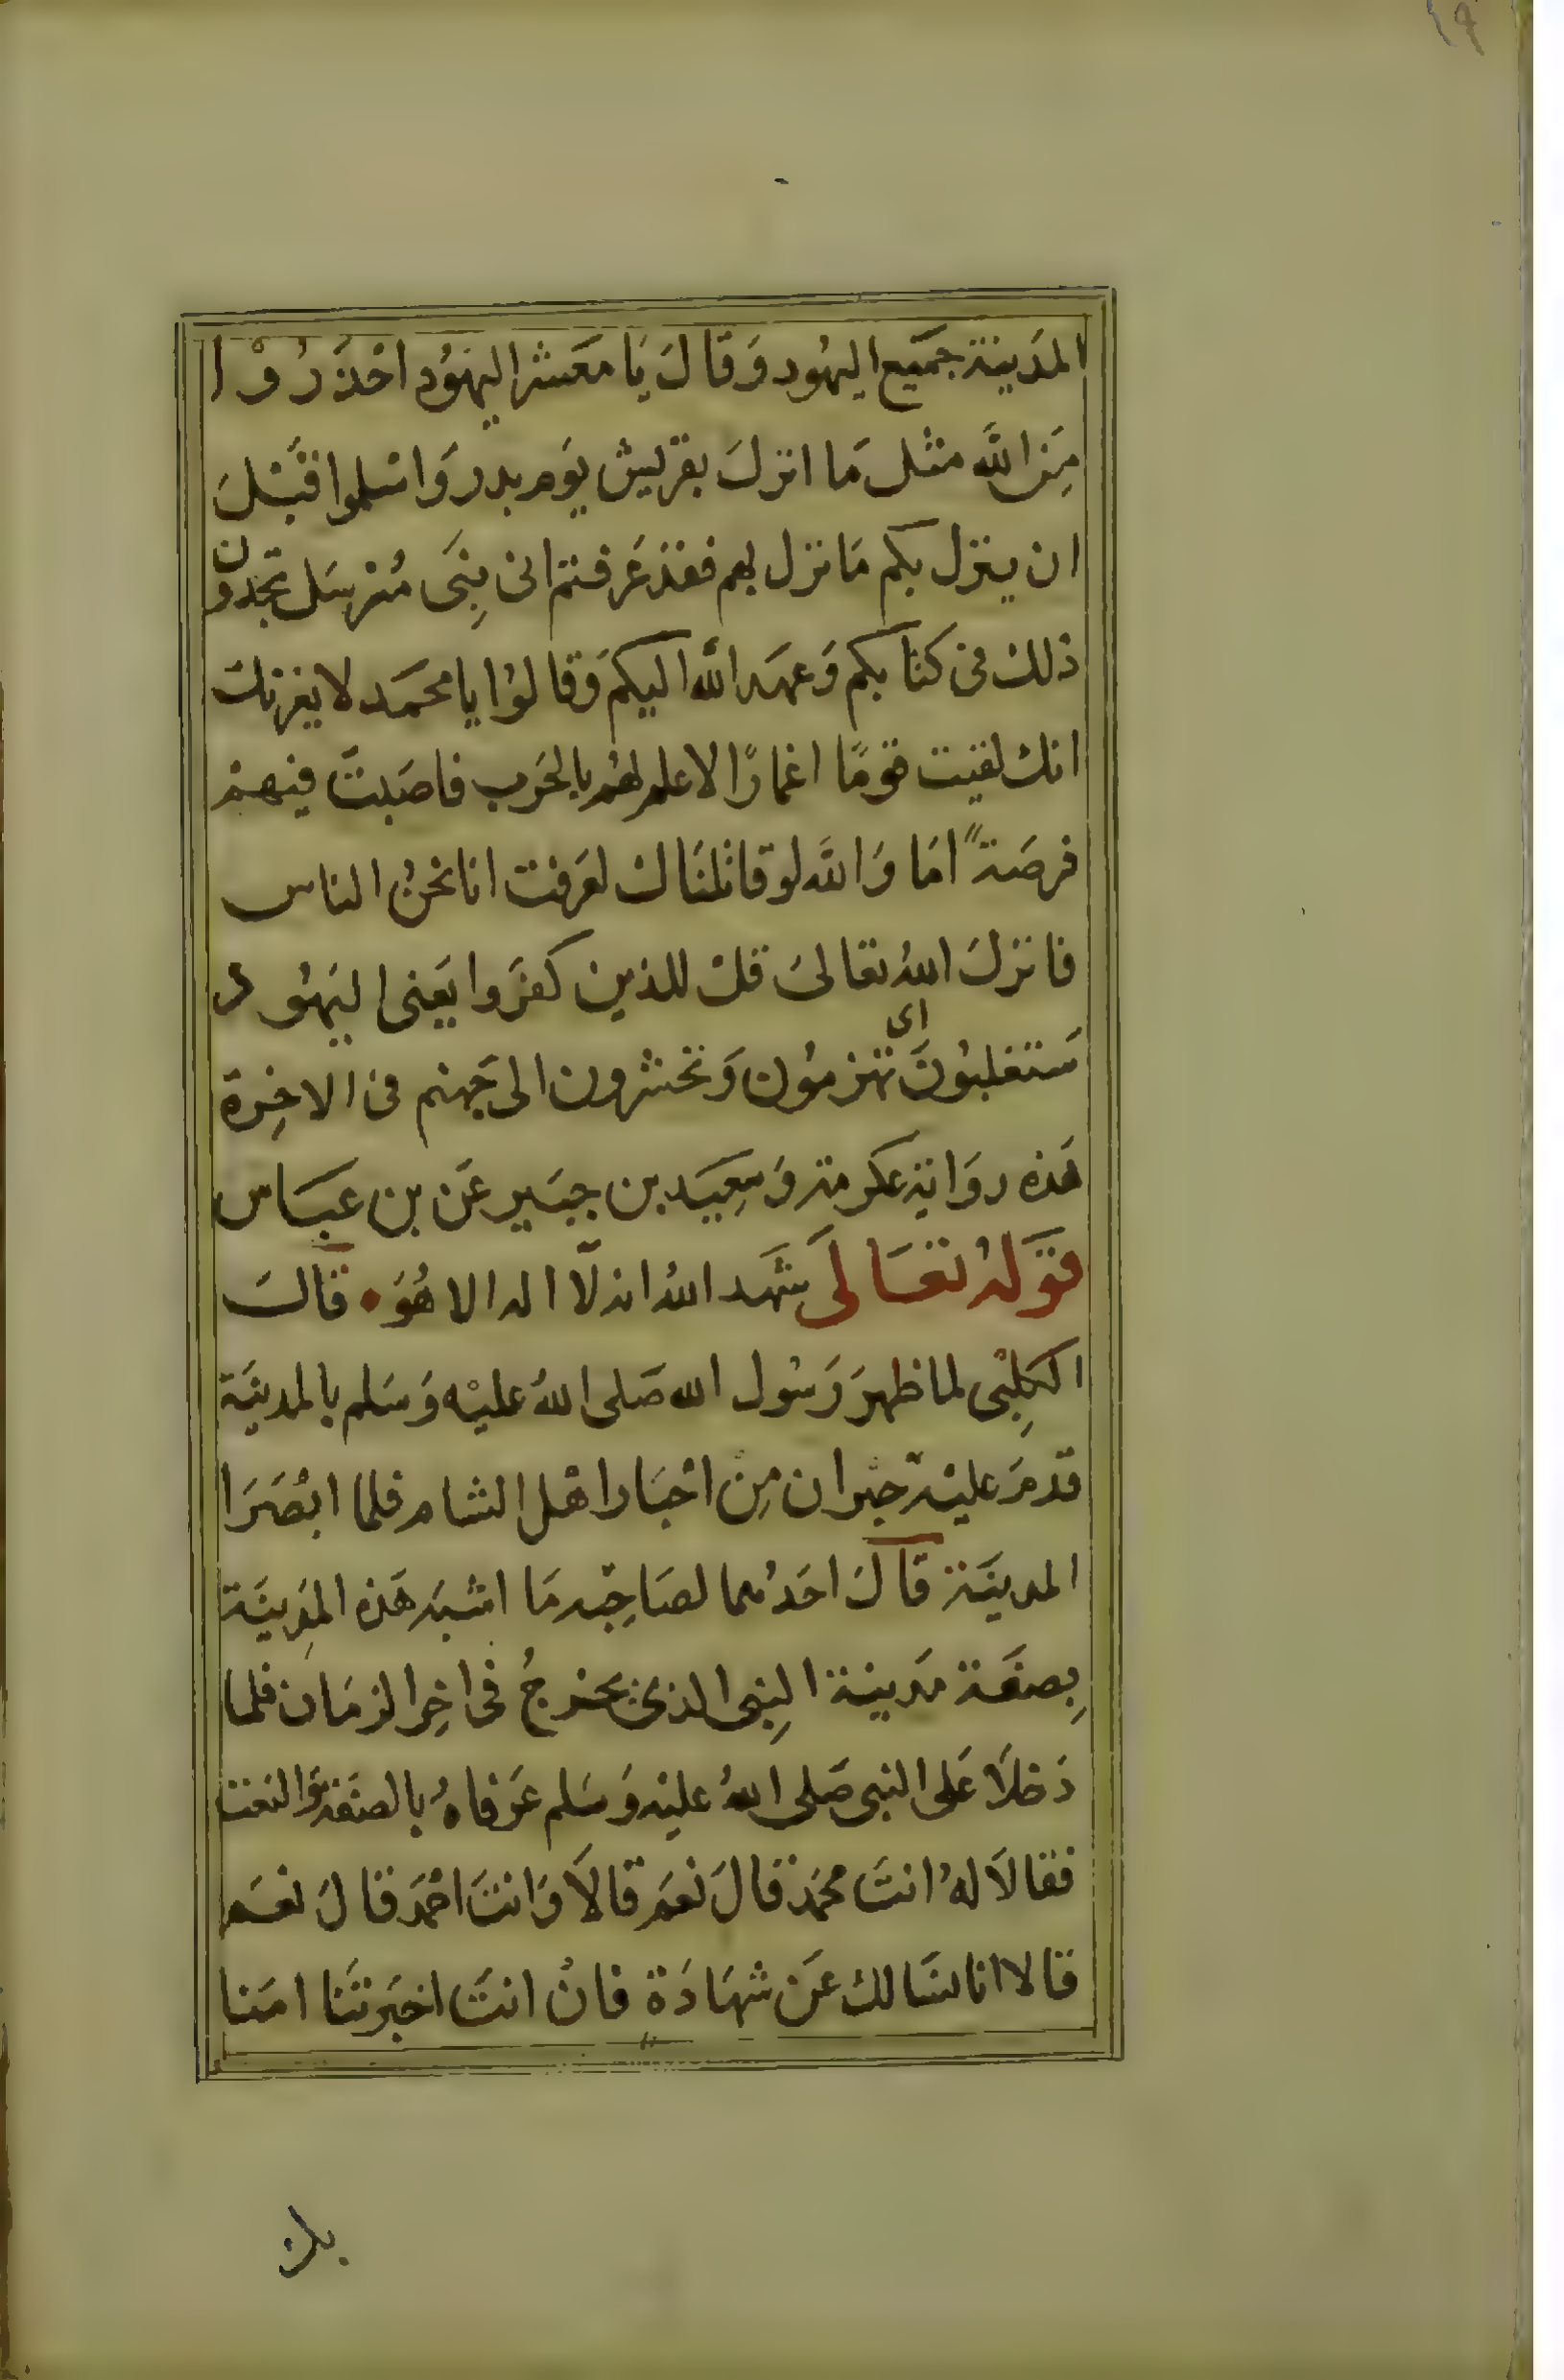 المدَينة جمَيع اليهُود وَقالَ يَا معَشر اليهَوُد احْذَرُوْا
مِنَ اللَّه مثْل مَا انزلَ بقريش يَوم بدر وَاسْلموا قبْلَ
ان ينزل بكم مَا نزل بهم فقد عَرفتم انى نِبَى مُرسَل تجدون
ذلك فى كتابكم وَعهَد اللَّه اليكم وَقالوُا يا محمَد لا يغرنك
انك لقيت قومًا اغمارًا لا علم لهُم بالحَرب فاصَبتَ فيهمْ
فرصَةً امَا وَاللَّه لو قاتلنَاك لعَرفت انا نحنُ الناس
فانزلَ اللهُ تعالىَ قلْ للذين كفرَوا يَعنى اليَهُود
سَتغلبُونَ اى تهزمُون وَتحشرون الى جَهنم فى الاخِرة
هَذه روَاية عكرمة وَسعِيَد بن جبَير عَن بن عبَاس
قوَلهُ تعَالىَ شهَد اللهُ انه لآ اله الا هُوَ • قالَ
الكِلبْى لما ظهرَ رَسُول الله صَلى اللهُ عليْه وَسَلم بالمدينَة
قدمَ عليْه حبران مِن احْبَار اهْل الشام فلما ابْصَرَا
المدينَة قالَ احَدُهما لصَاحِبه مَا اشبَه هَذه المَدِينَة
بِصفَة مَدينة النِبى الذى يخرجُ فى اخِر الزمَان فلما
دَخلاَ عَلى النبى صَلى اللهُ عليْه وَسَلم عَرَفاهُ بالصفَة وَالنعَت
فقالاَ لهُ انتَ محمَد قالَ نعَم قالاَ وَانتَ احْمَد قالَ نعَم
قالا انا لنسَالك عَن شهَادَة فانْ انتَ اخبَرتنَا امَنا
بك